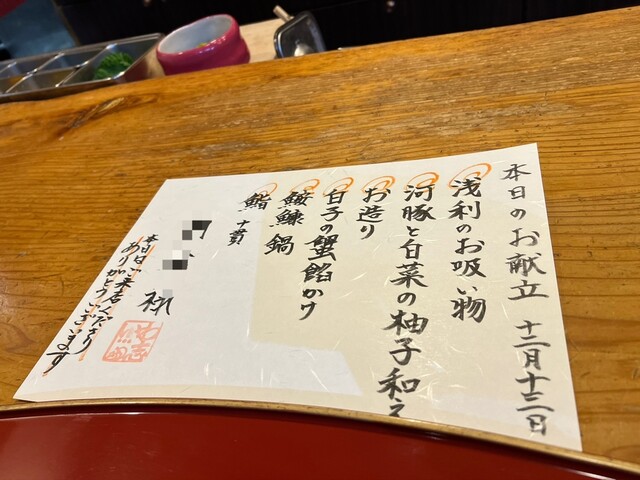 本日のお献立 十二月十二日
浅利のお吸い物
河豚と白菜の柚子和え
お造り
白子の蟹餡かけ
鮟鱇鍋
鮨 十貫
様
本日ご来店くださり
ありがとうございます